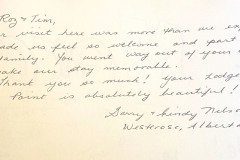 Roy & Tim,
r visit here was more than we ex
ade us feel so welcome and part
family. You went way out of your
ake our stay memorable.
Thank you so much! Your Lodge
Point is absolutely beautiful!
Gary & Cindy Nels
Westrose, Alberta